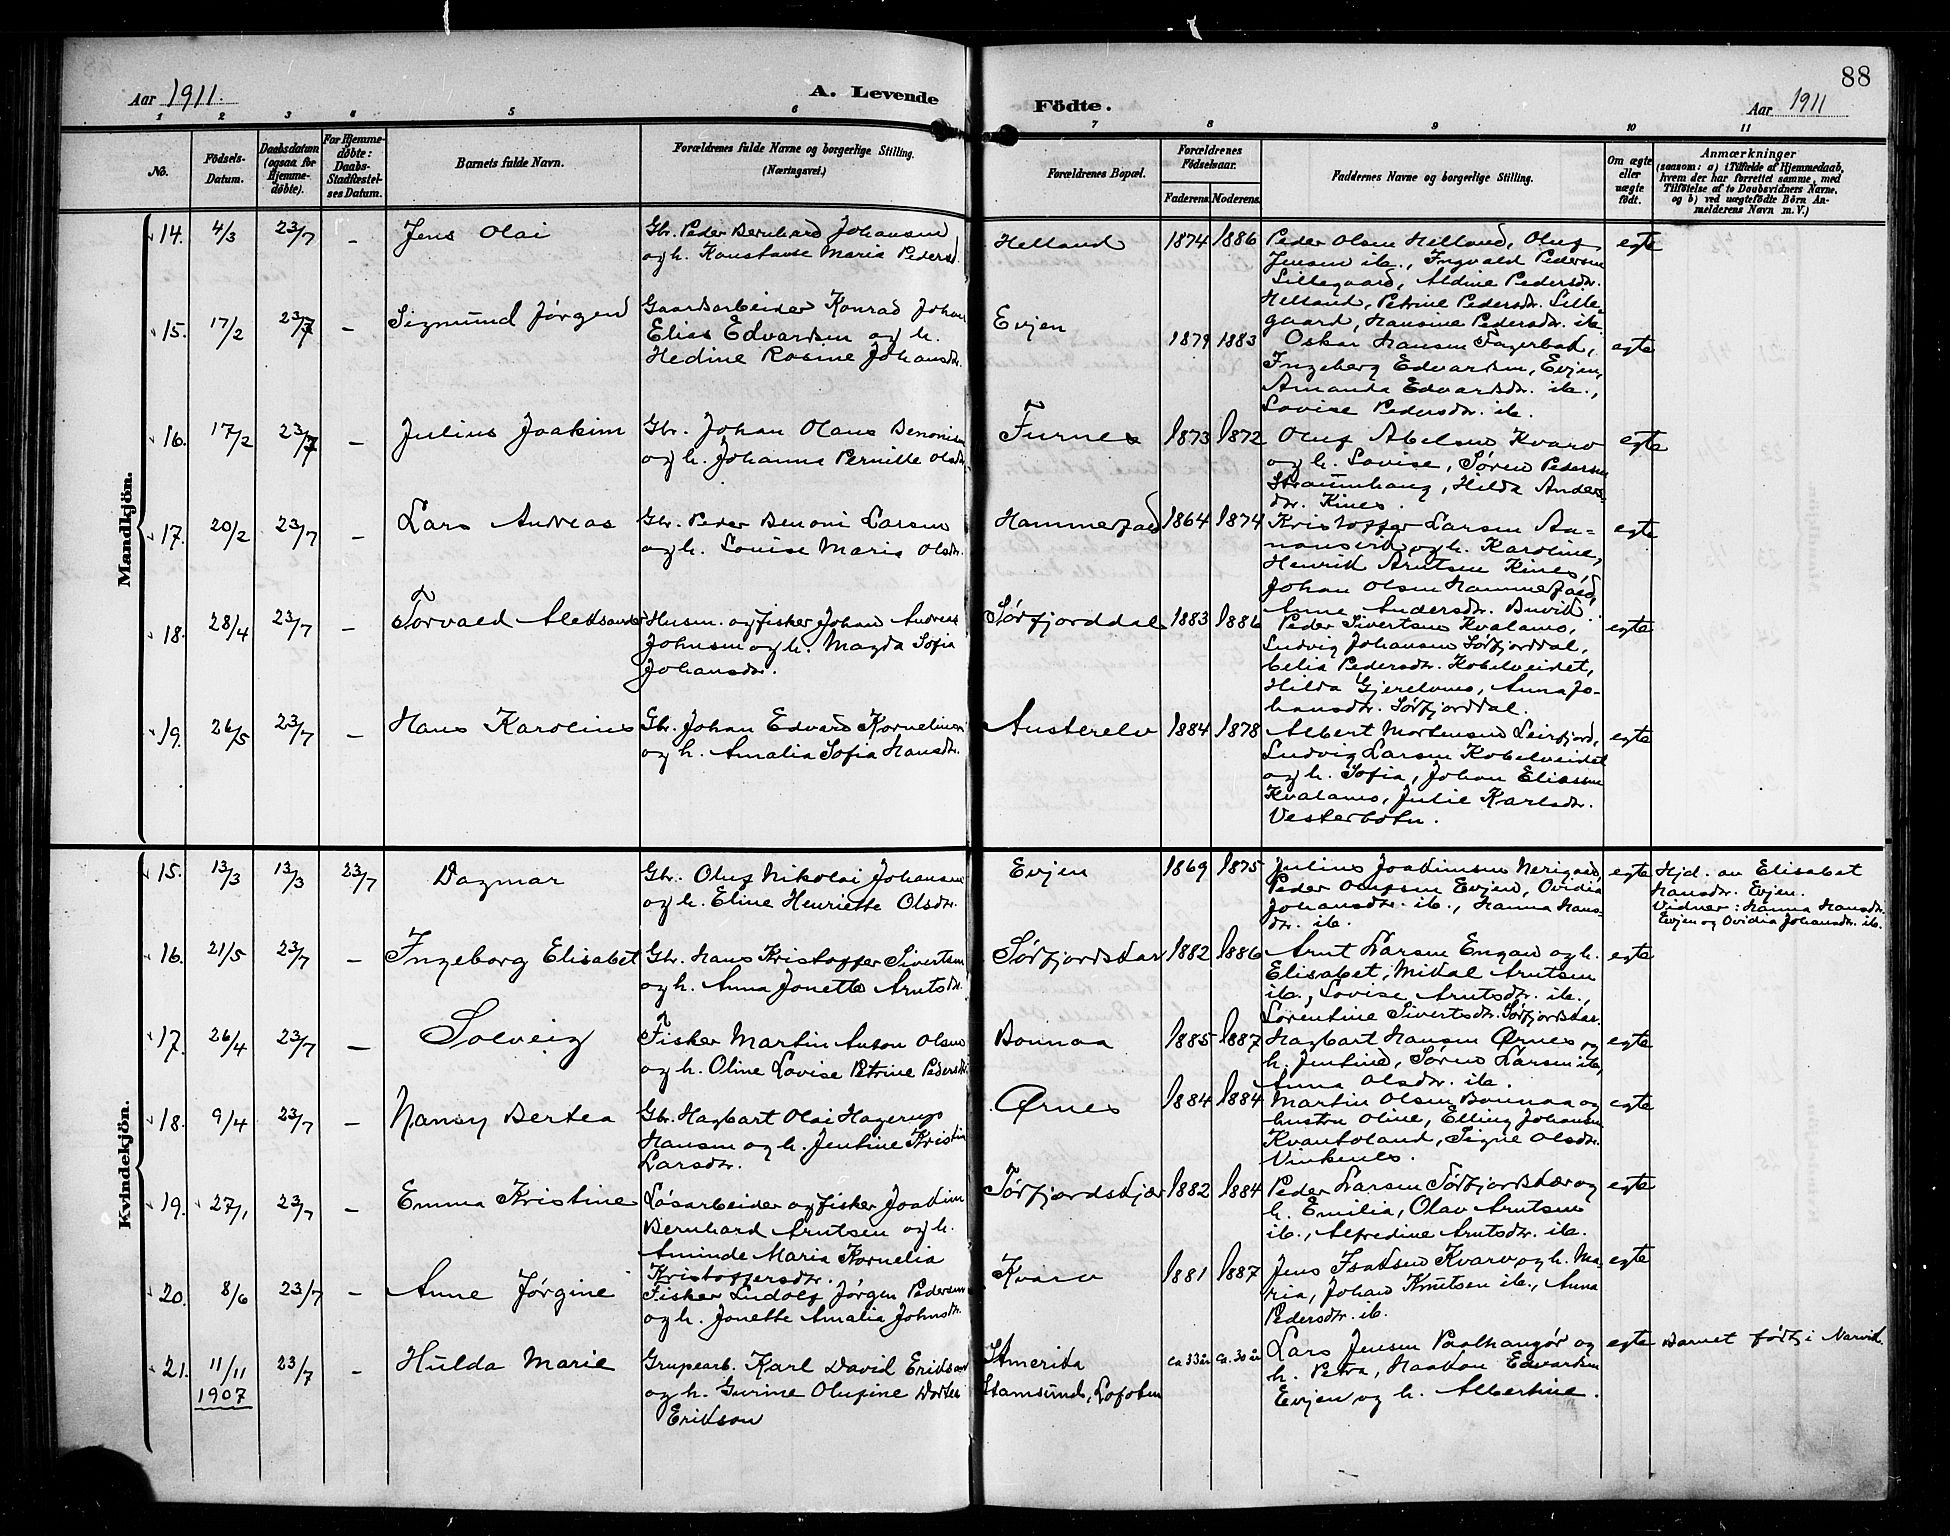 88
Aar 1911.
A. Levende
Födte.
Aar 1911
1 2 3 4 5 6 7 8 9 10 11
No.
Födsels-
Datum.
Daabsdatum
(ogsaa for
Hjemme-
døbte).
For Hjemme-
døbte:
Daabs-
Stadfæstel-
ses Datum.
Barnets fulde Navn.
Forældrenes fulde Navne og borgerlige Stilling.
(Næringsvei.)
Forældrenes Bopæl.
Forældrenes
Födselsaar.
Faderens. Moderens.
Faddernes Navne og borgerlige Stilling.
Om ægte
eller
uægte
født.
Anmærkninger
(saasom: a) i Tilfælde af Hjemmedaab,
hvem der har forrettet samme, med
Tilføielse af to Daabsvidners Navne,
og b) ved uægtefødte Börn An-
melderens Navn m. V.)
Mandkjön.
14. 4/3 23/7 – Jens Olai
Gbr. Peder Bernhard Johansen
og h. Konstanse Maria Pedersd.
Helland 1874 1886
Peder Olsen Helland, Oluf
Jensen ib., Ingvald Pedersen
Lillegaard, Aldine Pedersdtr.
Helland, Petrine Pedersdtr. Lille-
gaard, Hansine Pedersdtr. ib.
egte
15. 17/2 23/7 – Sigmund Jørgen
Gaardsarbeider Konrad Johan
Elias Edvardsen og h.
Hedine Rosine Johansdtr.
Evjen 1879 1883
Oskar Hansen Fagerbak,
Ingeberg Edvardsen, Evjen,
Amanda Edvardsdtr. ib.,
Lovise Pedersdtr. ib.
egte
16. 17/2 23/7 – Julius Joakim
Gbr. Johan Olaus Benonisen
og h. Johanna Pernille Olsdtr.
Furnes 1873 1872
Oluf Abelsen Kvarv
og h. Lovise, Søren Pedersen
Straumhaug, Hilda Anders-
dtr. Kines.
egte
17. 20/2 23/7 – Lars Andreas
Gbr. Peder Benoni Larsen
og h. Louise Maria Olsdtr.
Hammerfald 1864 1874
Kristoffer Larsen
og h. Karoline,
Henrik Arntsen Kines,
Johan Olsen Hammerfald,
Anne Andersdtr. Buvik.
egte
18. 28/4 23/7 – Torvald Aleksander
Husm. og fisker Johan Andreas
Johnsen og h. Magda Sofia
Johansdtr.
Sørfjorddal 1883 1886
Peder Sivertsen Kvalanes,
Ludvig Johansen Sørfjorddal,
Celia Pedersdtr. Kobelveidet,
Hilda Gjerelvnes, Anna Jo-
hansdtr. Sørfjorddal.
egte
19. 26/5 23/7 – Hans Karolius
Gbr. Johan Edvard Korneliusen
og h. Amalia Sofia Hansdtr.
Austerelv 1884 1878
Albert Mortensen Leirfjord,
Ludvig Larsen Kobelveidet
og h. Sofia, Johan Eliassen
Kvalanes, Julie Karlsdtr.
Vesterbotn.
egte
Kvindekjön.
15. 13/3 13/3 23/7 Dagmar
Gbr. Oluf Nikolai Johansen
og h. Eline Henriette Olsdtr.
Evjen 1869 1875
Julius Joakimsen Nerigard,
Peder Olufsen Evjen, Ovidia
Johansdtr. ib., Hanna Hans-
dtr. ib.
egte
Hjd. av Elisabet
Hansdtr. Evjen.
Vidner: Hanna Hansdtr.
Evjen og Ovidia Johansdtr. ib.
16. 21/5 23/7 – Ingeborg Elisabet
Gbr. Hans Kristoffer Sivertsen
og h. Anna Jonette Arntsdtr.
Sørfjordskar 1882 1886
Arnt Larsen Engan og h.
Elisabet, Mikal Arntsen
ib., Lovise Arntsdtr. ib.,
Lorentine Sivertsdtr. Sørfjordskar.
egte
17. 26/4 23/7 – Solveig
Fisker Martin Anton Olsen
og h. Oline Lovise Petrine Pedersdtr.
Bonnaa 1885 1887
Hagbart Hansen Ørnes og
h. Jentine, Søren Larsen ib.,
Anna Olsdtr. ib.
egte
18. 9/4 23/7 – Nansy Bertea
Gbr. Hagbart Olai Hagerup
Hansen og h. Jentine Kristin
Larsdtr.
Ørnes 1884 1884
Martin Olsen Bonnaa og
hustru Oline, Elling Johansen
Kvantoland, Signe Olsdtr.
Vinkenes.
egte
19. 27/1 23/7 – Emma Kristine
Løsarbeider og fisker Joakim
Bernhard Arntsen og h.
Aminde Maria Kornelia
Kristoffersdtr.
Sørfjordskjær 1882 1884
Peder Larsen Sørfjordskær og
h. Emilia, Olav Arntsen
ib., Alfredine Arntsdtr. ib.
egte
20. 8/6 23/7 – Anne Jørgine
Fisker Ludolf Jørgen Pedersen
og h. Jonette Amalia Johnsdtr.
Kvarv 1881 1887
Jens Isaksen Kvarv og h. Ma-
ria, Johan Knutsen ib., Anna
Pedersdtr. ib.
egte
21. 11/11 1907 23/7 – Hulda Marie
Grupearb. Karl David Erikson
og h. Gurine Olufine Dortea
Erikson
Amerika
Stamsund, Lofoten
ca 33 år ca. 30 år
Lars Jensen Paalhangør og
h. Petra, Haakon Edvardsen
Evjen og h. Albertine.
egte
Barnet født i Narvik.